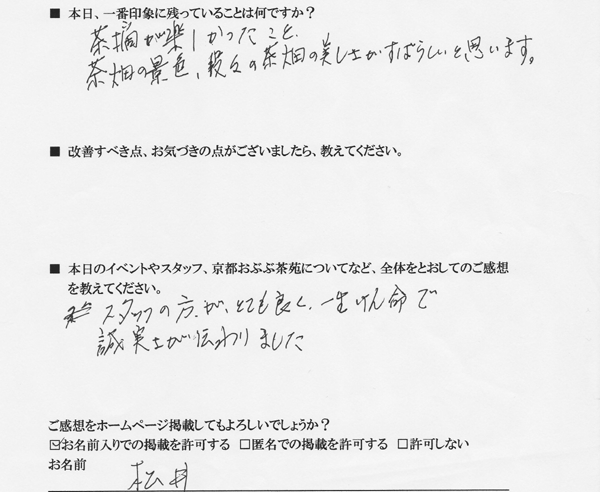 ■ 本日、一番印象に残っていることは何ですか?
茶摘が楽しかったこと、
茶畑の景色、段々の茶畑の美しさがすばらしいと思います。
■ 改善すべき点、お気づきの点がございましたら、教えてください。
■ 本日のイベントやスタッフ、京都おぶぶ茶苑についてなど、全体をとおしてのご感想
を教えてください。
スタッフの方が、とても良く、一生けん命で
誠実さが伝わりました
ご感想をホームページ掲載してもよろしいでしょうか?
☑お名前入りでの掲載を許可する □匿名での掲載を許可する □許可しない
お名前
松井